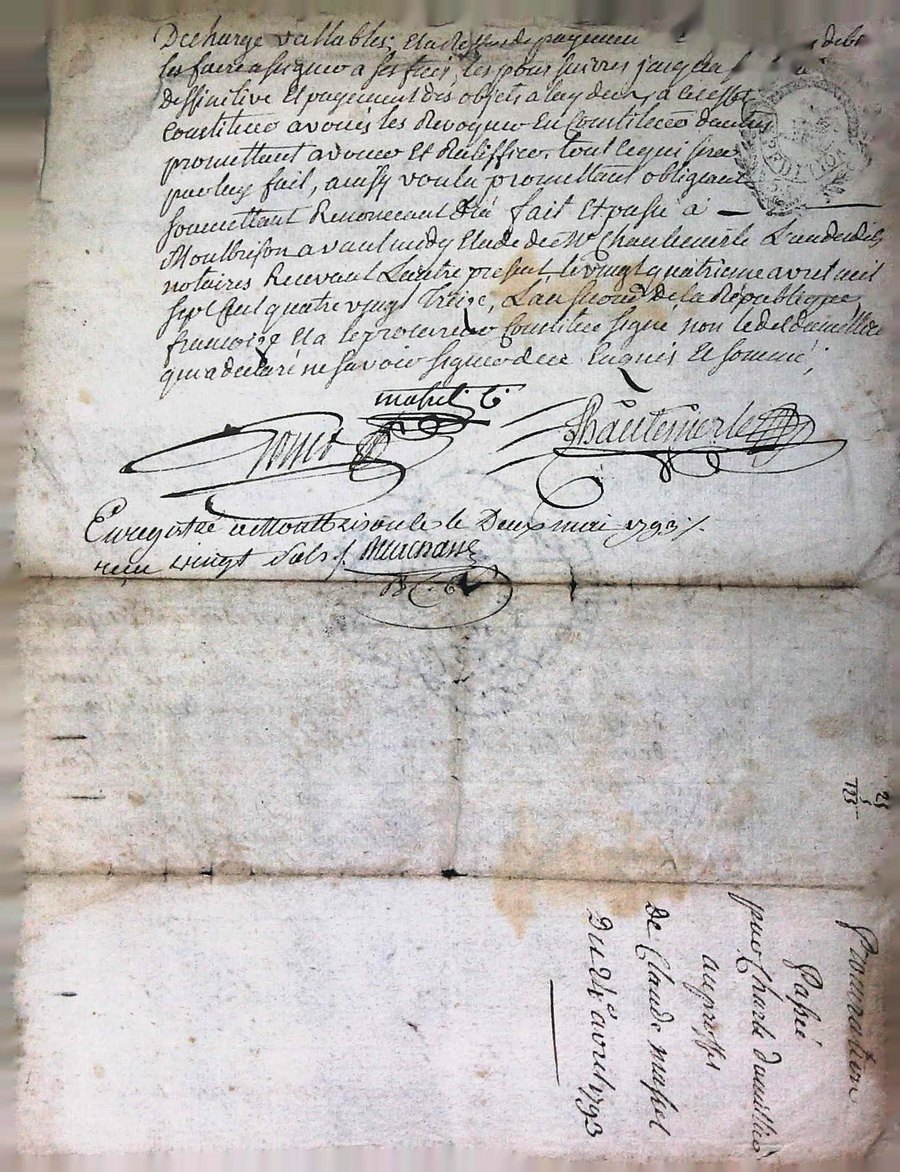 Decharge vallables, Et a deffaut de payement
les faire assigner a ses frais, les poursuivres jusqu'a
deffinitive Et payement des objets a luy deus, a cet effet
Constituer avoués les Revoquer En Constituer d'autres
promettant avouer Et Ratiffier tout ce qui sera
par luy fait, ainsy voulu promettant obligeant
soumettant Renoncant &a fait Et passé à —
Montbrison avant midy Etude de Me Chantemerle L'un des dits
notaires Recevant L'autre present, le vingt quatrieme avril mil
sept Cent quatre vingt Treize, L'an second de la République
francoise Et a le procureur Constitué signé non le dit
qui a declaré ne savoir signer de ce Enquis Et sommé;
massel C.
Chantemerle
Enregistré a Montbrison le Deux mai 1793 /.
reçu vingt sols /.
25
5
125
Procuration
Passée
par Charle
au proffit
de Claude massel
Du 24e avril 1793